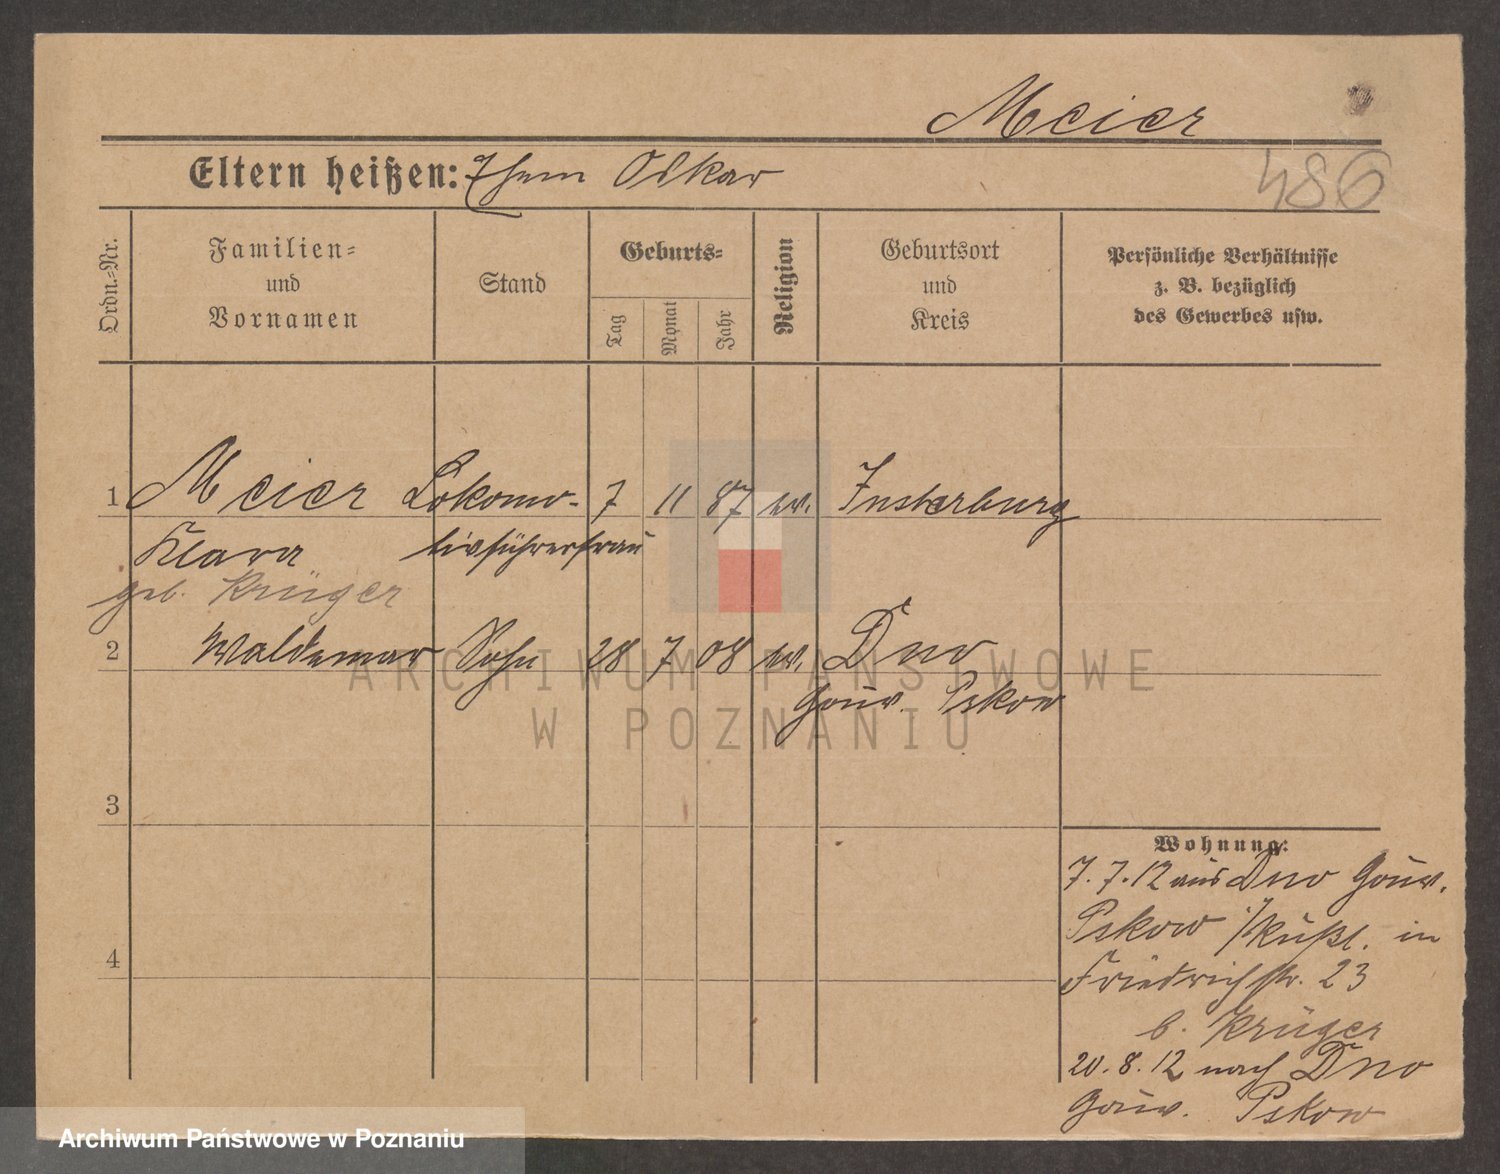 Meier
Eltern heißen: Ehem Oskar
486
Ordn.=Nr.
Familien=
und
Vornamen
Stand
Geburts=
Tag
Monat
Jahr
Religion
Geburtsort
und
Kreis
Persönliche Verhältnisse
z. B. bezüglich
des Gewerbes usw.
1 Meier Lokomo- 7 11 87 ev. Insterburg
Klara tivführerfrau
geb. Krüger
2 Waldemar Sohn 28 7 08 ev. Dno
Gouv. Pskow
ARCHIWUM PAŃSTWOWE
W POZNANIU
3
4
Wohnung:
7.7.12 aus Dno Gouv.
Pskow i/Rußl. in
Friedrichstr. 23
b. Krüger
20.8.12 nach Dno
Gouv. Pskow
Archiwum Państwowe w Poznaniu